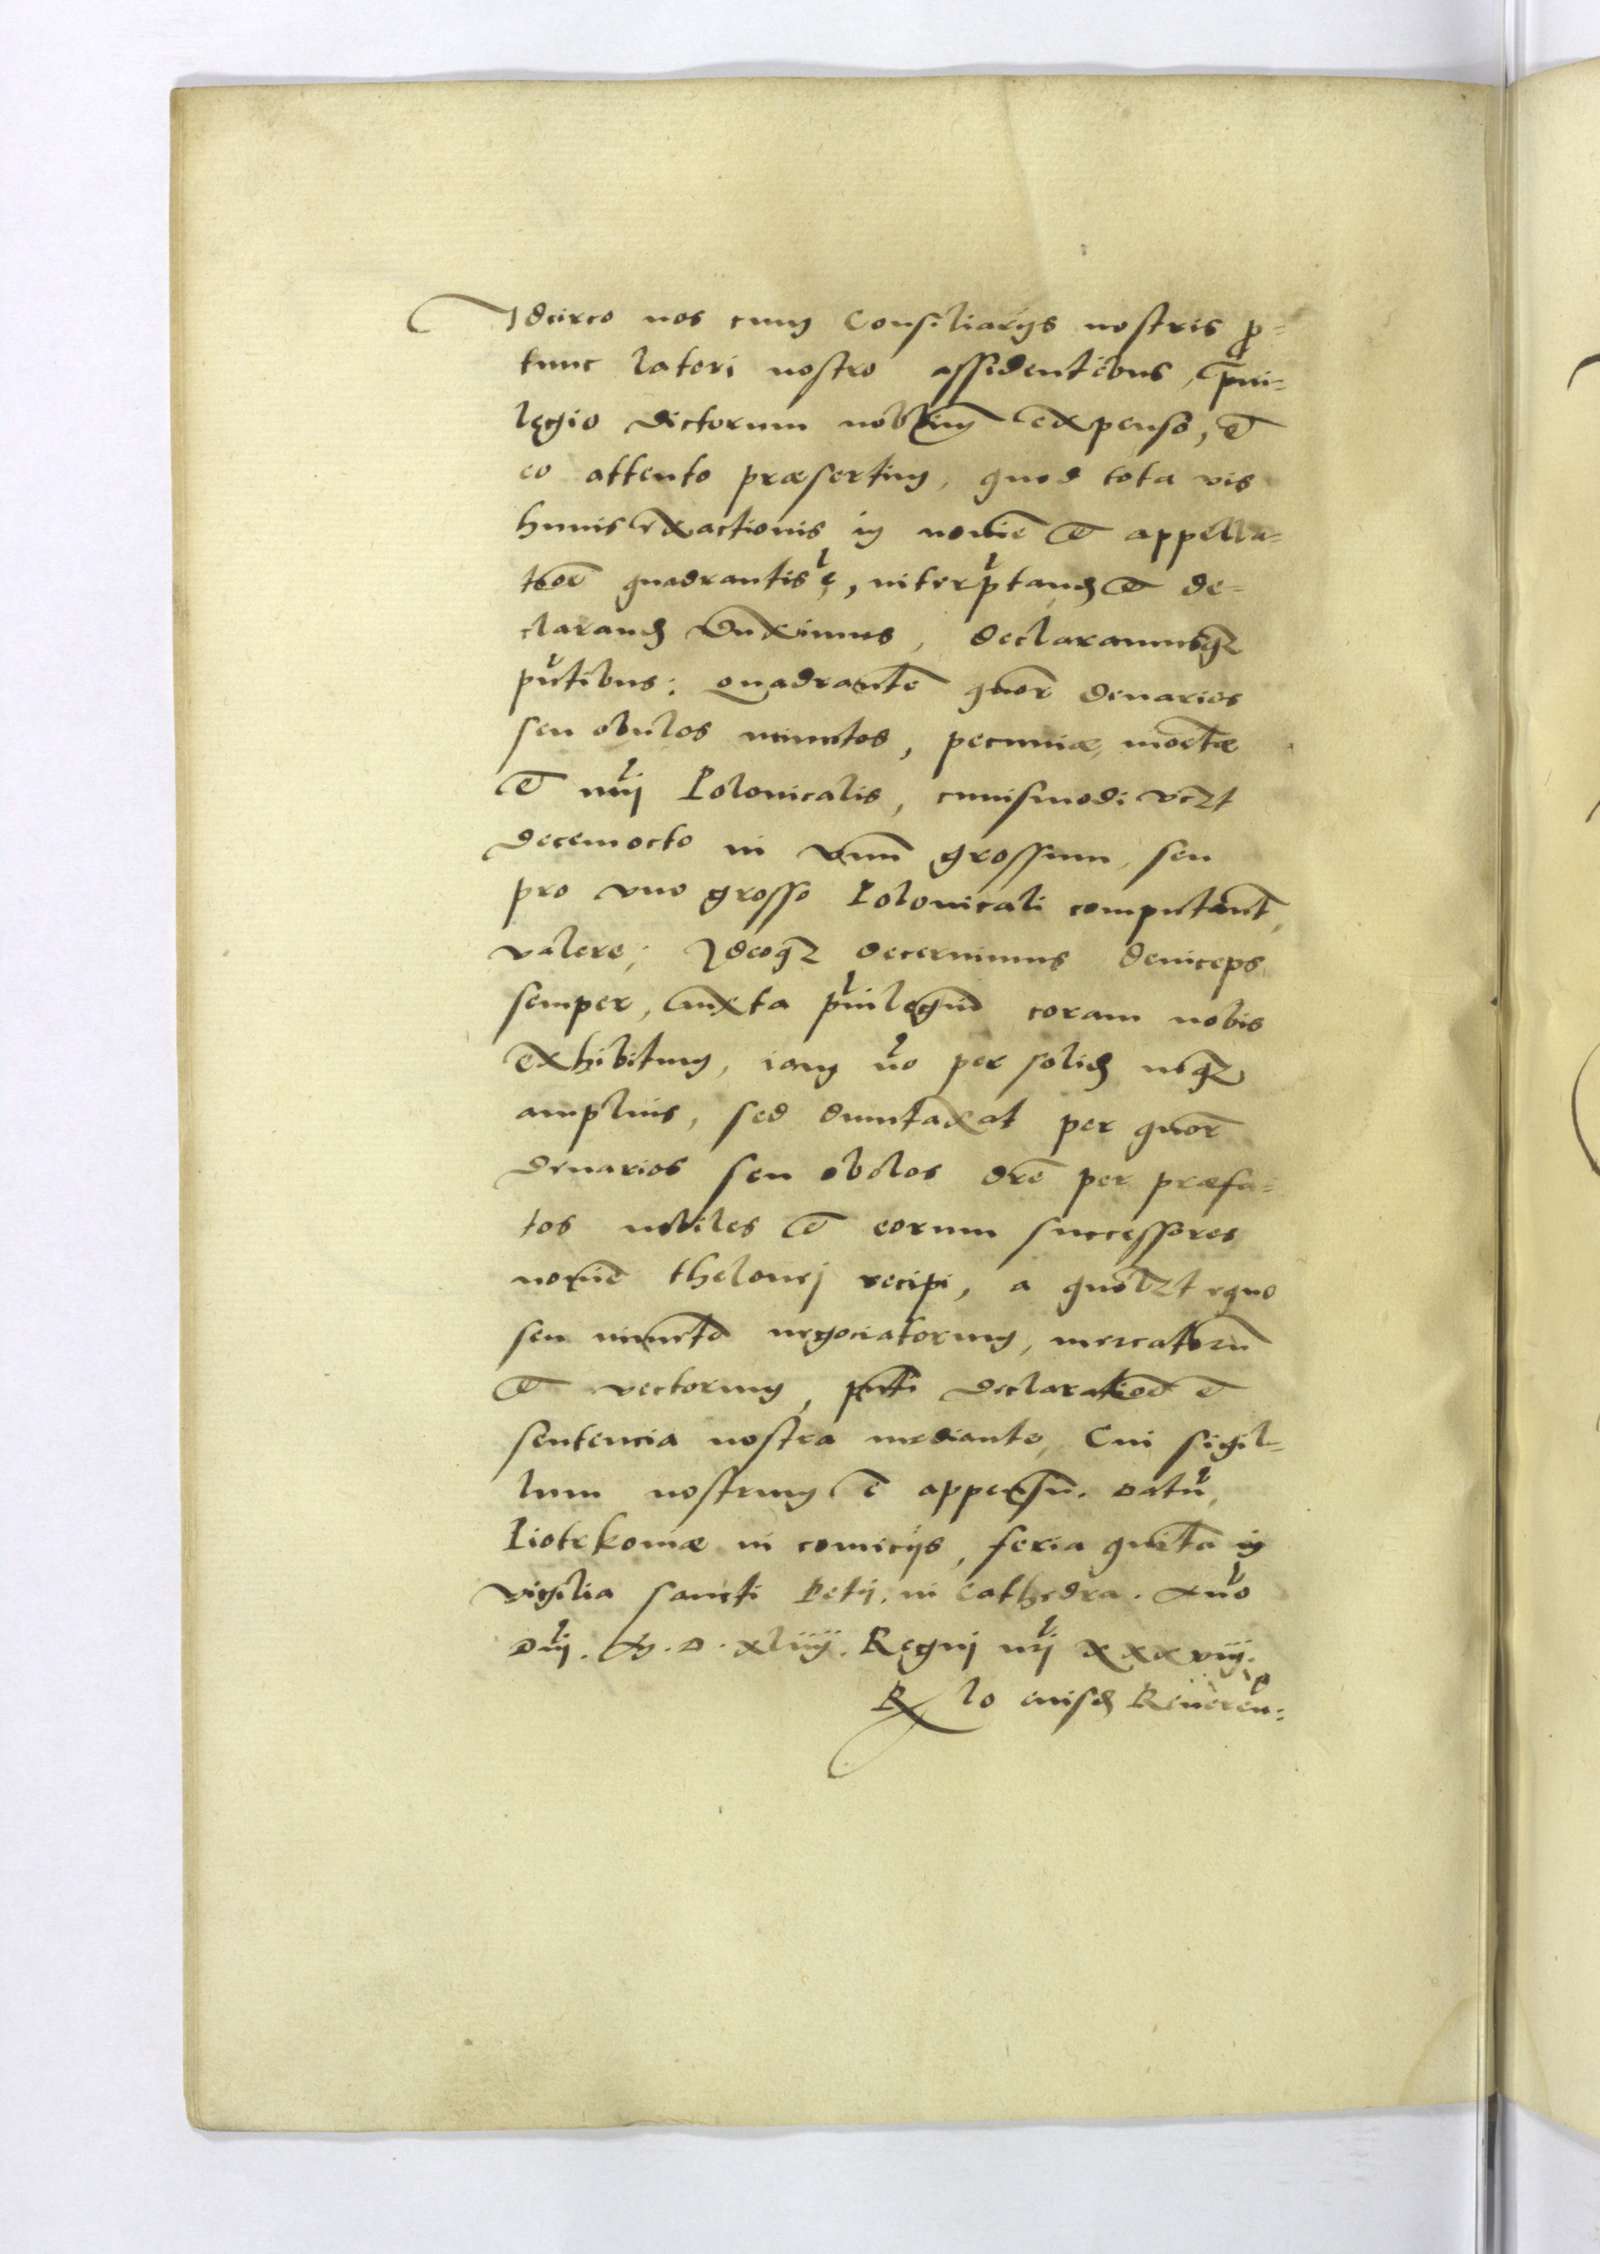 Idcirco nos cum Consiliarijs nostris ꝓ-
tunc lateri nostro assidentibus, priui-
legio dictorum nobilium expenso, et
eo attento præsertim, quod tota vis
huius exactionis in nomine et appella-
tione quadrantis est, interpretand et de-
clarand duximus, declaramusqꝫ
pntibus: quadrantem quatuor denarios
seu obulos minutos, pecuniæ monetæ
et nri Polonicalis, cuiusmodi vczt
decemocto in vnum grossum, seu
pro vno grosso Polonicali computantur,
valere; Ideoqꝫ decernimus deinceps
semper, iuxta priuilegium coram nobis
exhibitum, iam vero per solid neqꝫ
amplius, sed duntaxat per quatuor
denarios seu obolos dre per præfa-
tos nobiles et eorum successores
nomine thelonej recipi, a quolibzt equo
seu iumento negociatorum, mercatorum
et vectorum, pnti declaratione et
sentencia nostra mediante, Cui sigil-
lum nostrum est appensum. Datum
Piotrkowiæ in comicijs, feria quinta in
vigilia sancti Petrj, in Cathedra. Anno
Dnj. M. D. xliiij. Regnj nrj xxxviij.
Rlo eiusd Reueren-